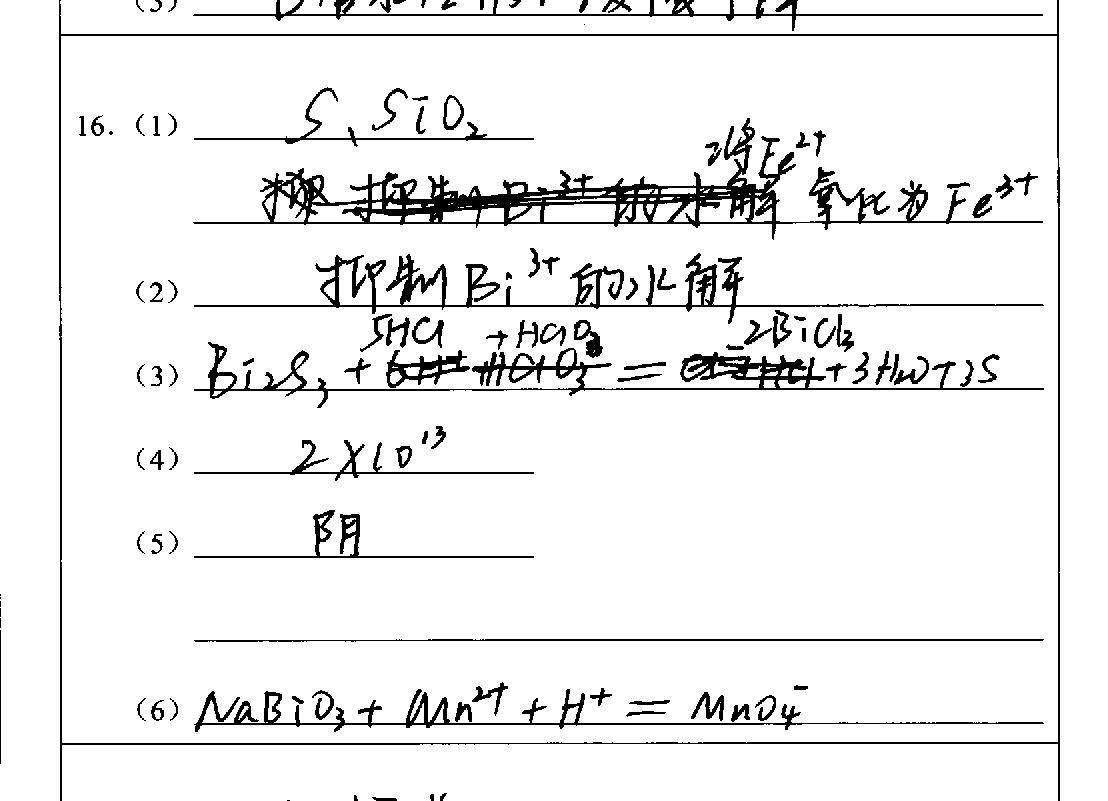 16.（1） S、SiO₂
将Fe²⁺
氧化为Fe³⁺
（2） 抑制Bi³⁺的水解
5HCl +HClO₃ 2BiCl₃
（3） Bi₂S₃ + = +3H₂O+3S
（4） 2×10¹³
（5） 阴
（6） NaBiO₃ + Mn²⁺ + H⁺ = MnO₄⁻